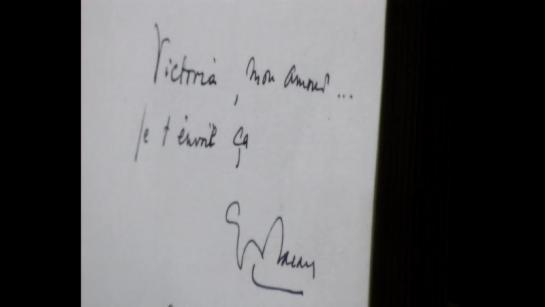 Victoria, mon amour...
je t'envoie ça